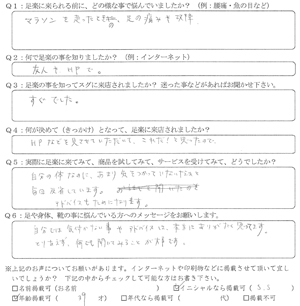 Q1：足楽に来られる前に、どの様な事で悩んでいましたか？（例：腰痛・魚の目など）
マラソンを走ったとき
Q2：何で足楽の事を知りましたか？（例：インターネット）
友人 HPで。
Q3：足楽の事を知ってスグに来店されましたか？迷った事などがあればお聞かせ下さい。
すぐでした。
Q4：何が決めて（きっかけ）となって、足楽に来店されましたか？
HPなどを見させていただいて、これだ！と思ったので。
Q5：実際に足楽に来てみて、商品を試してみて、サービスを受けてみて、どうでしたか？
自分の体なのに、あまり気をつかっていなかったなと
アドバイスをもらえたので
Q6：足や身体、靴の事に悩んでいる方へのメッセージをお願いします。
自分では気付かない事やアドバイスは、本当にありがたく
とりあえず、何でも聞いてみることが大事です。
※上記のお声についてお願いがあります。インターネットや印刷物などに掲載させて頂いて宜し
いでしょうか？ 下記の中からチェックして可能な方はお書き下さい。
□名前掲載可（お名前 ） ☑イニシャルなら掲載可（ S.S ）
☑年齢掲載可（ 39 才） □年代なら掲載可（ 代） □掲載不可